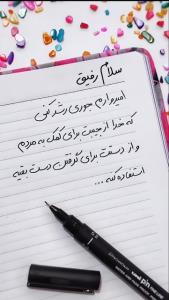 سلام رفیق
امیدوارم جوری رشد کنی
که خدا از جیبت برای کمک به مردم
و از دستت برای گرفتن دست بقیه
استفاده کنه ...
uni ph